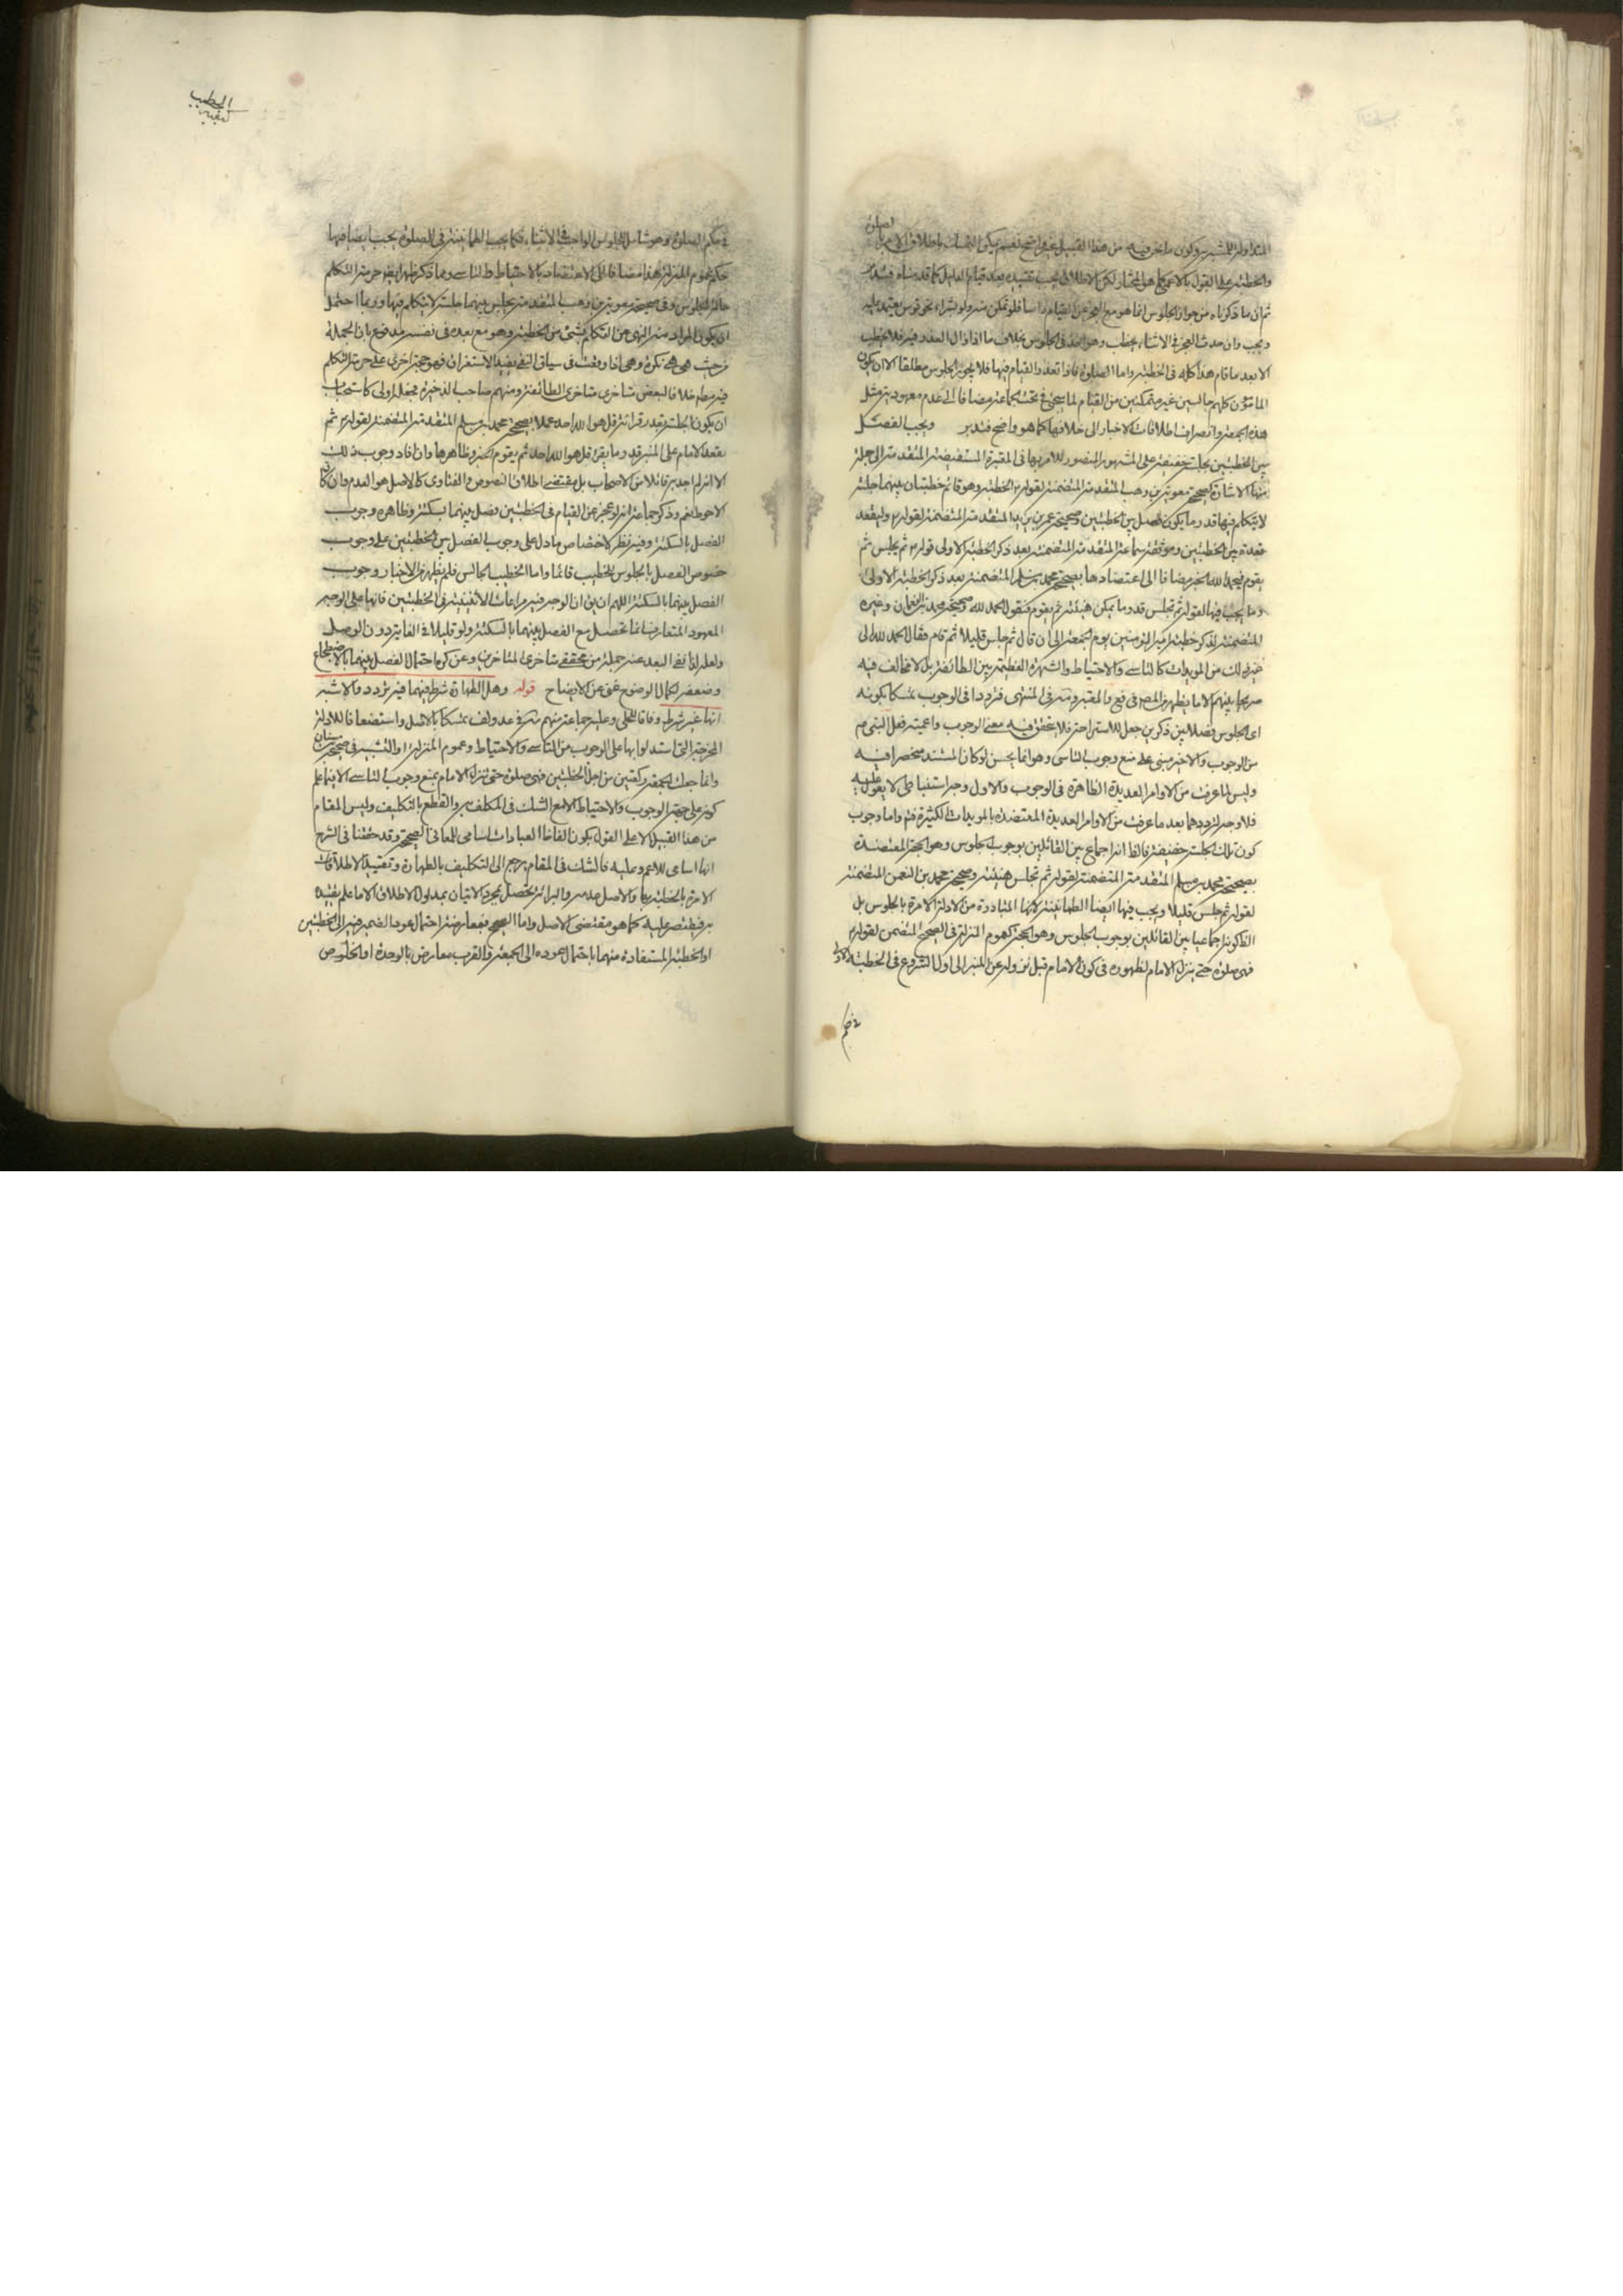 والخطبة على القول بالاعم كما هو المختار لكن الاطلاق يجب تقييده بعد قيام الدليل كما قدمناه فتدبر
ثم ان ما ذكرناه من جواز الجلوس انما هو مع العجز عن القيام راسا فلو تمكن منه ولو بشراء نحو قوس يعتمد عليه
وجب وان حدث العجز في الاثناء يخطب وهو اخذ في الجلوس بخلاف ما اذا زال العذر فيه فلا يخطب
الا بعد ما قام هذا كله في الخطبة واما الصلوة فاذا تعذر القيام فيها فلا يجوز الجلوس مطلقا الا ان يكون
المامومون كلهم جالسين غير متمكنين من القيام لما سيجئ في بحث الجماعة مضافا الى عدم معهودية مثل
هذه الجمعة وانصراف اطلاقات الاخبار الى خلافها كما هو واضح فتدبر ويجب الفصل
بين الخطبتين بجلسة خفيفة على المشهور المنصور للامر بها في المعتبرة المستفيضة المتقدمة الى جملة
منها الاشارة كصحيحة معوية بن وهب المتقدمة المتضمنة لقوله الخطبة وهو قائم خطبتان بينهما جلسة
لا يتكلم فيها قدر ما يكون فصل بين الخطبتين وصحيحة عمر بن يزيد المتقدمة المتضمنة لقوله وليقعد
قعدة بين الخطبتين وموثقة سماعة المتقدمة المتضمنة بعد ذكر الخطبة الاولى قوله ثم يجلس ثم
يقوم فيحمد الله الخبر مضافا الى اعتضادها بصحيحة محمد بن مسلم المتضمنة بعد ذكر الخطبة الاولى
وما يجب فيها لقوله ثم تجلس قدر ما يمكن هنيئة ثم يقوم فيقول الحمد لله وصحيحة محمد بن النعمان وغيره
المتضمنة لذكر خطبة امير المؤمنين يوم الجمعة الى ان قال ثم جلس قليلا ثم قام فقال الحمد لله الى
غير ذلك من المويدات كالتاسي والاحتياط والشهرة العظيمة بين الطائفة بل لا مخالف فيه
صريحا بينهم الا ما يظهر من المص في فع والمعتبر ومنه في المنتهى فترددا في الوجوب تمسكا بكونه
اي الجلوس فصلا بين ذكرين جعل للاستراحة فلا يتحقق فيه معنى الوجوب واعمية فعل النبي ص
من الوجوب والاخير مبني على منع وجوب التاسي وهو انما يحسن لو كان المستند منحصرا فيه
وليس لما عرفت من الاوامر العديدة الظاهرة في الوجوب والاول وجه استنباطي لا يعول عليه
فلا وجه لترددهما بعد ما عرفت من الاوامر العديدة المعتضدة بالمويدات الكثيرة فتم واما وجوب
كون تلك الجلسة خفيفة فالظ انه اجماع بين القائلين بوجوب الجلوس وهو الحجة المعتضدة
بصحيحة محمد بن مسلم المتقدمة المتضمنة لقوله ثم تجلس هنيئة وصحيحة محمد بن النعمن المتضمنة
لقوله ثم جلس قليلا ويجب فيها ايضا الطمانينة لانها المتبادرة من الادلة الامرة بالجلوس بل
الظ كونه اجماعيا بين القائلين بوجوب الجلوس وهو الحجة كعموم المنزلة في الصحيح المتضمن لقوله
فهي صلوة حتى ينزل الامام لظهوره في كون الامام قبل نزوله عن المنبر الى اول الشروع في الخطبة الاولى
في حكم
في حكم الصلوة وهو شامل للجلوس الواجب في الاثناء فكما يجب الطمانينة في الصلوة يجب ايضا فيها
حكم عموم المنزلة هذا مضافا الى الاعتضاد بالاحتياط والتاسي ومما ذكر ظهر ايضا حرمة التكلم
حالة الجلوس وفي صحيحة معوية بن وهب المتقدمة يجلس بينهما جلسة لا يتكلم فيها وربما احتمل
ان يكون المراد منه النهي عن التكلم بشئ من الخطبة وهو مع بعده في نفسه مدفوع بان الجملة
من حيث هي هي نكرة وهي اذا وقعت في سياق النفي يفيد الاستغراق فهو حجة اخرى على حرمة التكلم
فيه مطلقا خلافا لبعض متاخري متاخري الطائفة ومنهم صاحب الذخيرة فجعله اولى كاستحباب
ان يكون الجلسة بقدر قرائة قل هو الله احد عملا بصحيحة محمد بن مسلم المتقدمة المتضمنة لقوله ثم
يقعد الامام على المنبر قدر ما يقرء قل هو الله احد ثم يقوم الخبر وظاهرها وان افاد وجوب ذلك
الا انه لم اجد به قائلا من الاصحاب بل مقتضى اطلاق النصوص والفتاوى كالاصل هو العدم وان كان
الاحوط نعم وذكر جماعة انه لو عجز عن القيام في الخطبتين فصل بينهما بسكتة وظاهره وجوب
الفصل بالسكتة وفيه نظر لاختصاص ما دل على وجوب الفصل بين الخطبتين على وجوب
خصوص الفصل بالجلوس للخطيب قائما واما الخطيب الجالس فلم يظهر من الاخبار وجوب
الفصل بينهما بالسكتة اللهم ان يق ان الوجه فيه مراعات الاثنينية في الخطبتين فانها على الوجه
المعهود المتعارف انما تحصل مع الفصل بينهما بالسكتة ولو قليلا في الغاية دون الوصل
ولعله لذا نفى البعد عنه جملة من محققي متاخري المتاخرين وعن كره احتمال الفصل بينهما بالاضطجاع
وضعفه لكمال الوضوح غني عن الايضاح قوله وهل الطهارة شرط فيهما فيه تردد والاشبه
انها غير شرط وفاقا للحلي وعليه جماعة منهم مه في عد ولف تمسكا بالاصل واستضعافا للادلة
المخرجة التي استدلوا بها على الوجوب من التاسي والاحتياط وعموم المنزلة او التشبيه في صحيحة بن سنان
وانما جعلت الجمعة ركعتين من اجل الخطبتين فهي صلوة حتى ينزل الامام بمنع وجوب التاسي الا فيما علم
كونه على جهة الوجوب والاحتياط الا مع الشك في المكلف به والقطع بالتكليف وليس المقام
من هذا القبيل الا على القول بكون الفاظ العبادات اسامي للمعاني الصحيحة وقد حققنا في الشرح
انها اسامي للاعم وعليه فالشك في المقام يرجع الى التكليف بالطهارة وتقييد الاطلاقات
الامرة بالخطبة بها والاصل عدمه والبرائة تحصل بمجرد الاتيان بمدلول الاطلاق الا ما علم تقييده
به فيقتصر عليه كما هو مقتضى الاصل واما الصحيح فبمعارضة احتمال عود الضمير فيه الى الخطبتين
او الخطبة المستفادة منهما باحتمال عوده الى الجمعة والقرب معارض بالوحدة او الخلوص